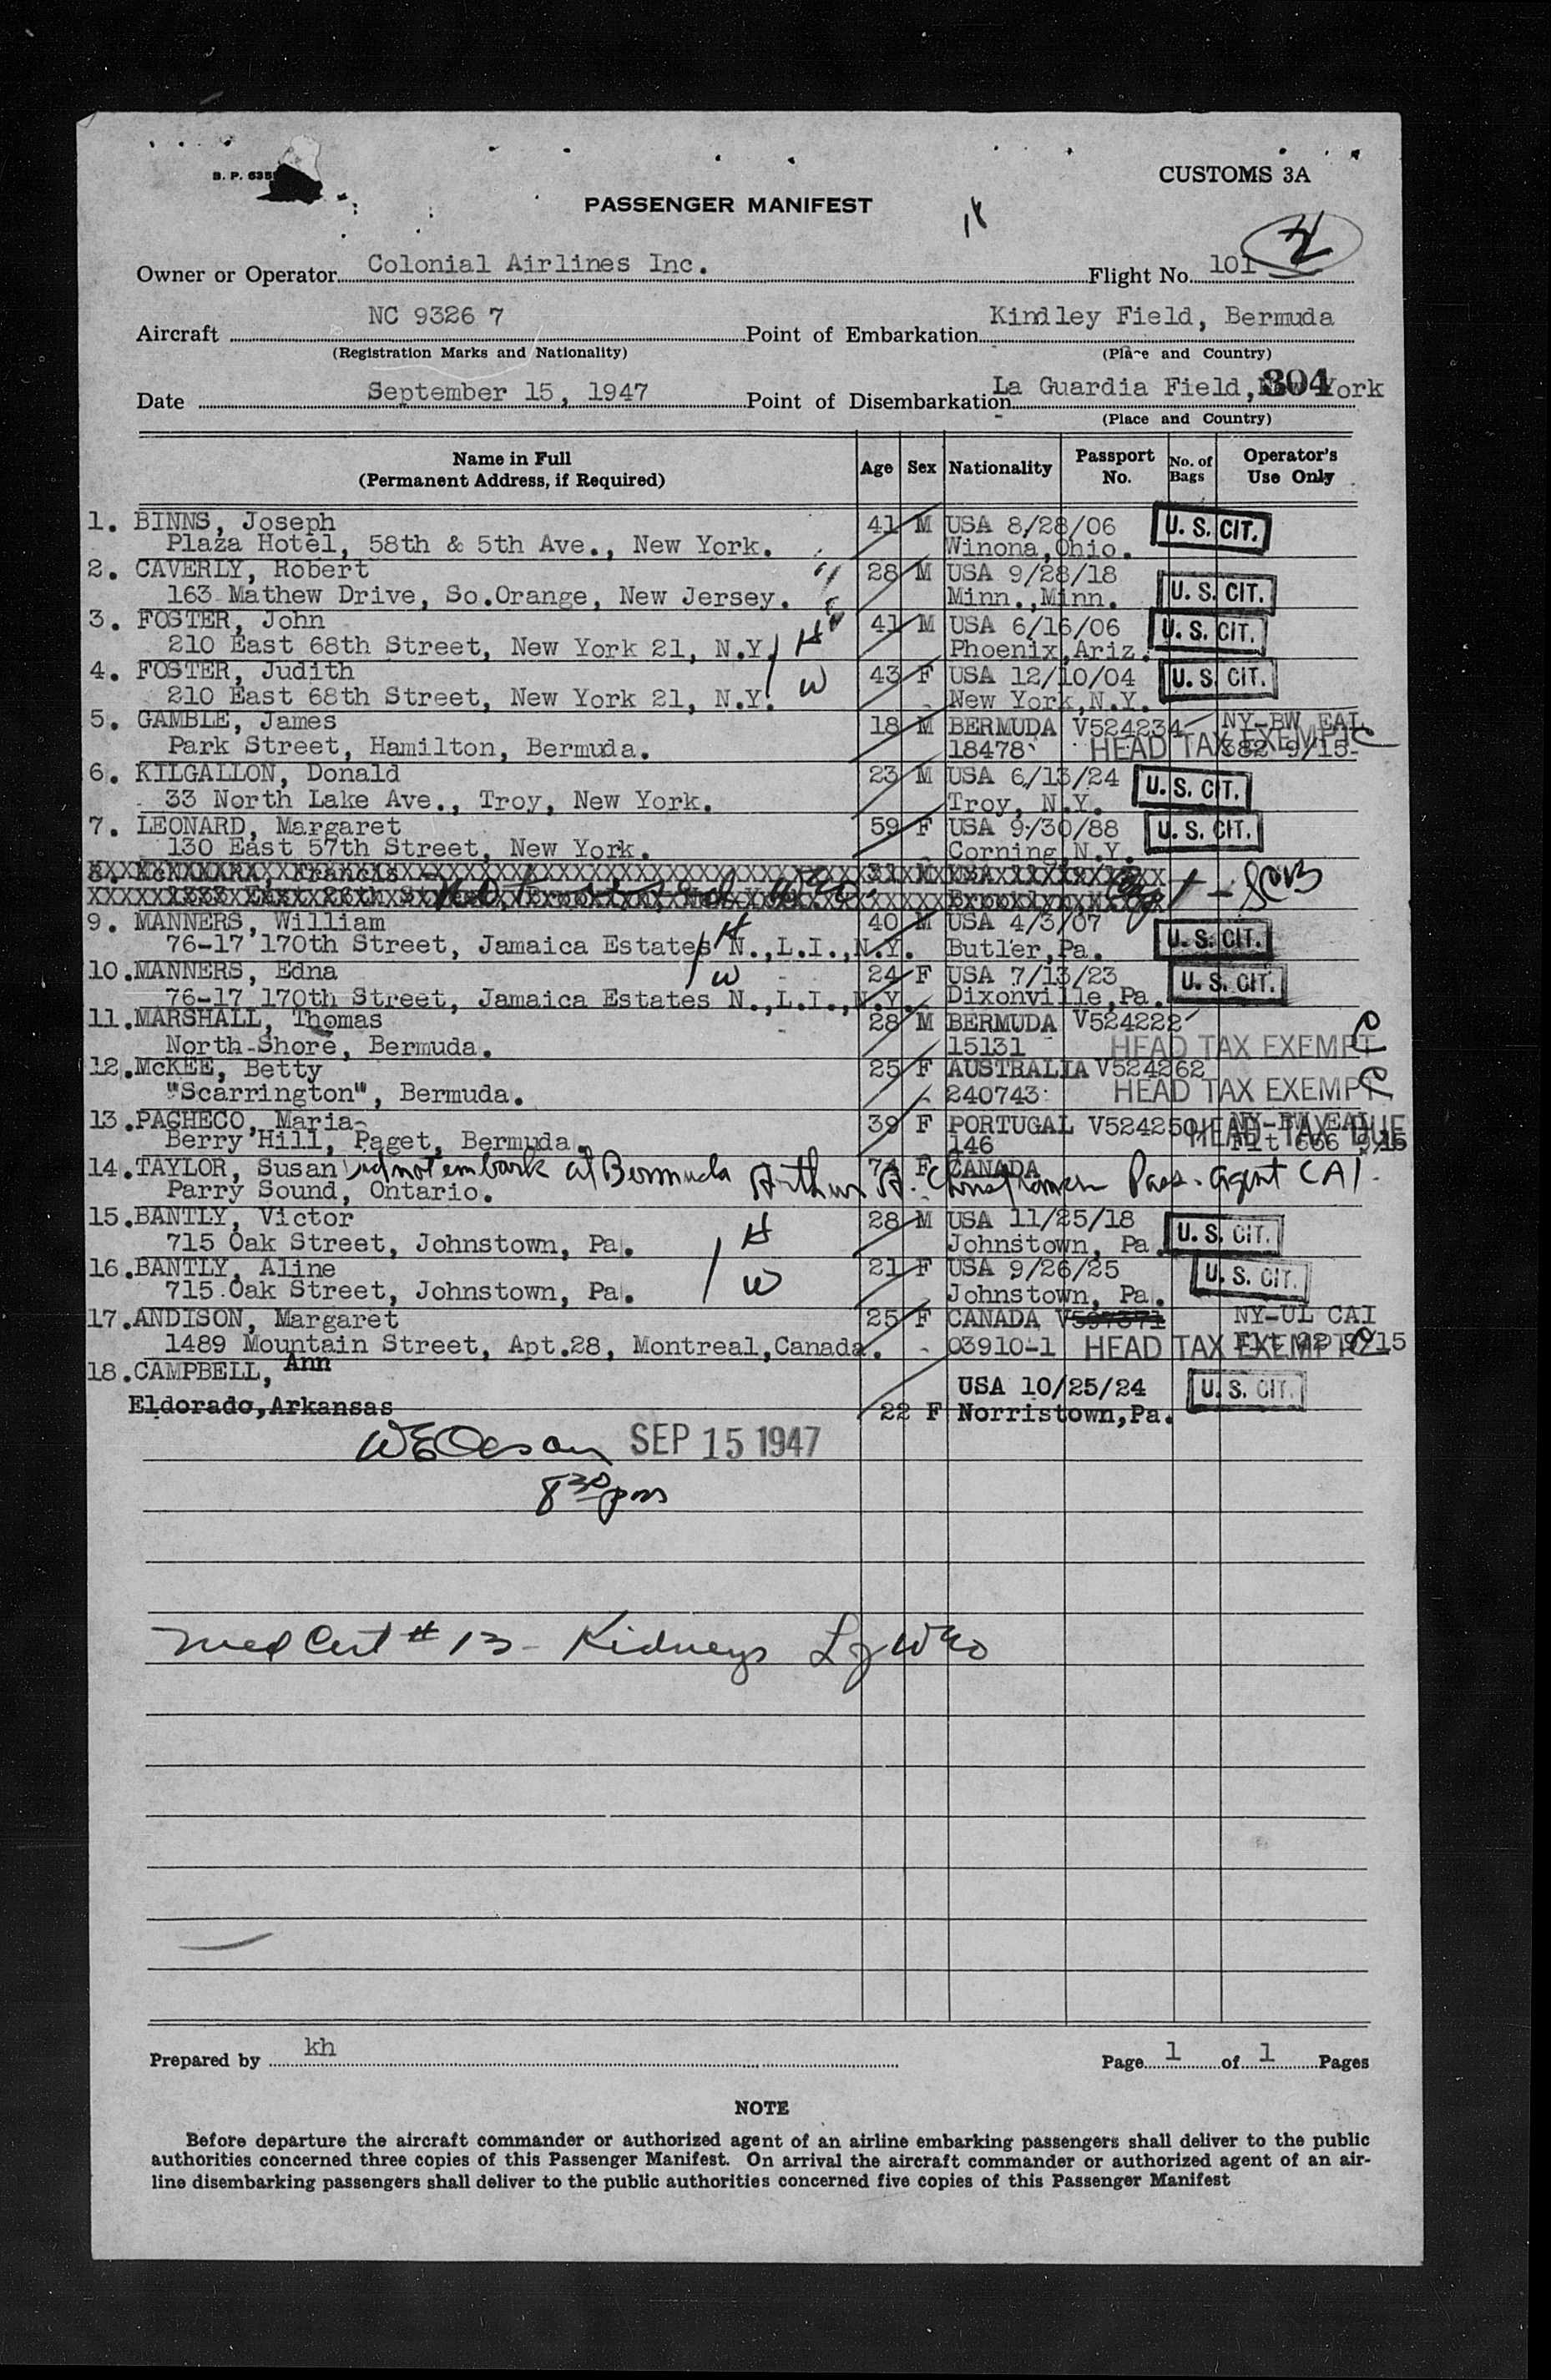 B. P. 635
CUSTOMS 3A
PASSENGER MANIFEST
Owner or Operator Colonial Airlines Inc. Flight No. 101
Aircraft NC 9326 7 Point of Embarkation Kindley Field, Bermuda
(Registration Marks and Nationality) (Place and Country)
Date September 15, 1947 Point of Disembarkation La Guardia Field, New York 304
(Place and Country)
Name in Full Age Sex Nationality Passport No. of Operator's
(Permanent Address, if Required) No. Bags Use Only
1. BINNS, Joseph 41 M USA 8/28/06 U. S. CIT.
Plaza Hotel, 58th & 5th Ave., New York. Winona,Ohio.
2. CAVERLY, Robert 28 M USA 9/28/18 U. S. CIT.
163 Mathew Drive, So.Orange, New Jersey. Minn.,Minn.
3. FOSTER, John 41 M USA 6/16/06 U. S. CIT.
210 East 68th Street, New York 21, N.Y. H Phoenix,Ariz.
4. FOSTER, Judith 43 F USA 12/10/04 U. S. CIT.
210 East 68th Street, New York 21, N.Y. W New York,N.Y.
5. GAMBLE, James 18 M BERMUDA V524234 NY-BW EAL
Park Street, Hamilton, Bermuda. 18478 HEAD TAX EXEMPT 382 9/15
6. KILGALLON, Donald 23 M USA 6/13/24 U. S. CIT.
33 North Lake Ave., Troy, New York. Troy, N.Y.
7. LEONARD, Margaret 59 F USA 9/30/88 U. S. CIT.
130 East 57th Street, New York. Corning,N.Y.
8. McNAMARA, Francis 31 M USA
Brooklyn
9. MANNERS, William 40 M USA 4/3/07 U. S. CIT.
76-17 170th Street, Jamaica Estates N.,L.I.,N.Y. H Butler,Pa.
10.MANNERS, Edna W 24 F USA 7/13/23 U. S. CIT.
76-17 170th Street, Jamaica Estates N.,L.I.,N.Y. Dixonville,Pa.
11.MARSHALL, Thomas 28 M BERMUDA V524222
North Shore, Bermuda. 15131 HEAD TAX EXEMPT
12.McKEE, Betty 25 F AUSTRALIA V524262
"Scarrington", Bermuda. 240743 HEAD TAX EXEMPT
13.PACHECO, Maria 39 F PORTUGAL V524250 NY-BW EAL HEAD TAX DUE
Berry Hill, Paget, Bermuda. 146 Flt 666 9/15
14.TAYLOR, Susan did not embark at Bermuda Arthur A. Pass. Agent CAI. 74 F CANADA
Parry Sound, Ontario.
15.BANTLY, Victor H 28 M USA 11/25/18 U. S. CIT.
715 Oak Street, Johnstown, Pa. Johnstown, Pa.
16.BANTLY, Aline W 21 F USA 9/26/25 U. S. CIT.
715 Oak Street, Johnstown, Pa. Johnstown, Pa.
17.ANDISON, Margaret 25 F CANADA V597371 NY-UL CAI
1489 Mountain Street, Apt.28, Montreal,Canada. 03910-1 HEAD TAX EXEMPT Flt 92 9/15
18.CAMPBELL, Ann USA 10/25/24 U. S. CIT.
Eldorado,Arkansas 22 F Norristown,Pa.
SEP 15 1947
8 30 pm
Med Cert # 13 - Kidneys
Prepared by kh Page 1 of 1 Pages
NOTE
Before departure the aircraft commander or authorized agent of an airline embarking passengers shall deliver to the public
authorities concerned three copies of this Passenger Manifest. On arrival the aircraft commander or authorized agent of an air-
line disembarking passengers shall deliver to the public authorities concerned five copies of this Passenger Manifest